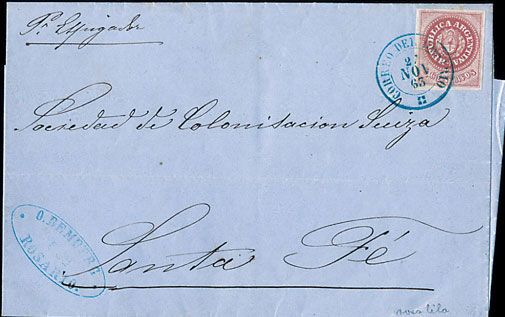 Pr. Espigador
REPUBLICA ARGENTINA
CORREO DEL ROSARIO
NOV
63
Sociedad de Colonisacion Suiza
O. BEMBERG
ROSARIO.
Santa Fé
rosa lila